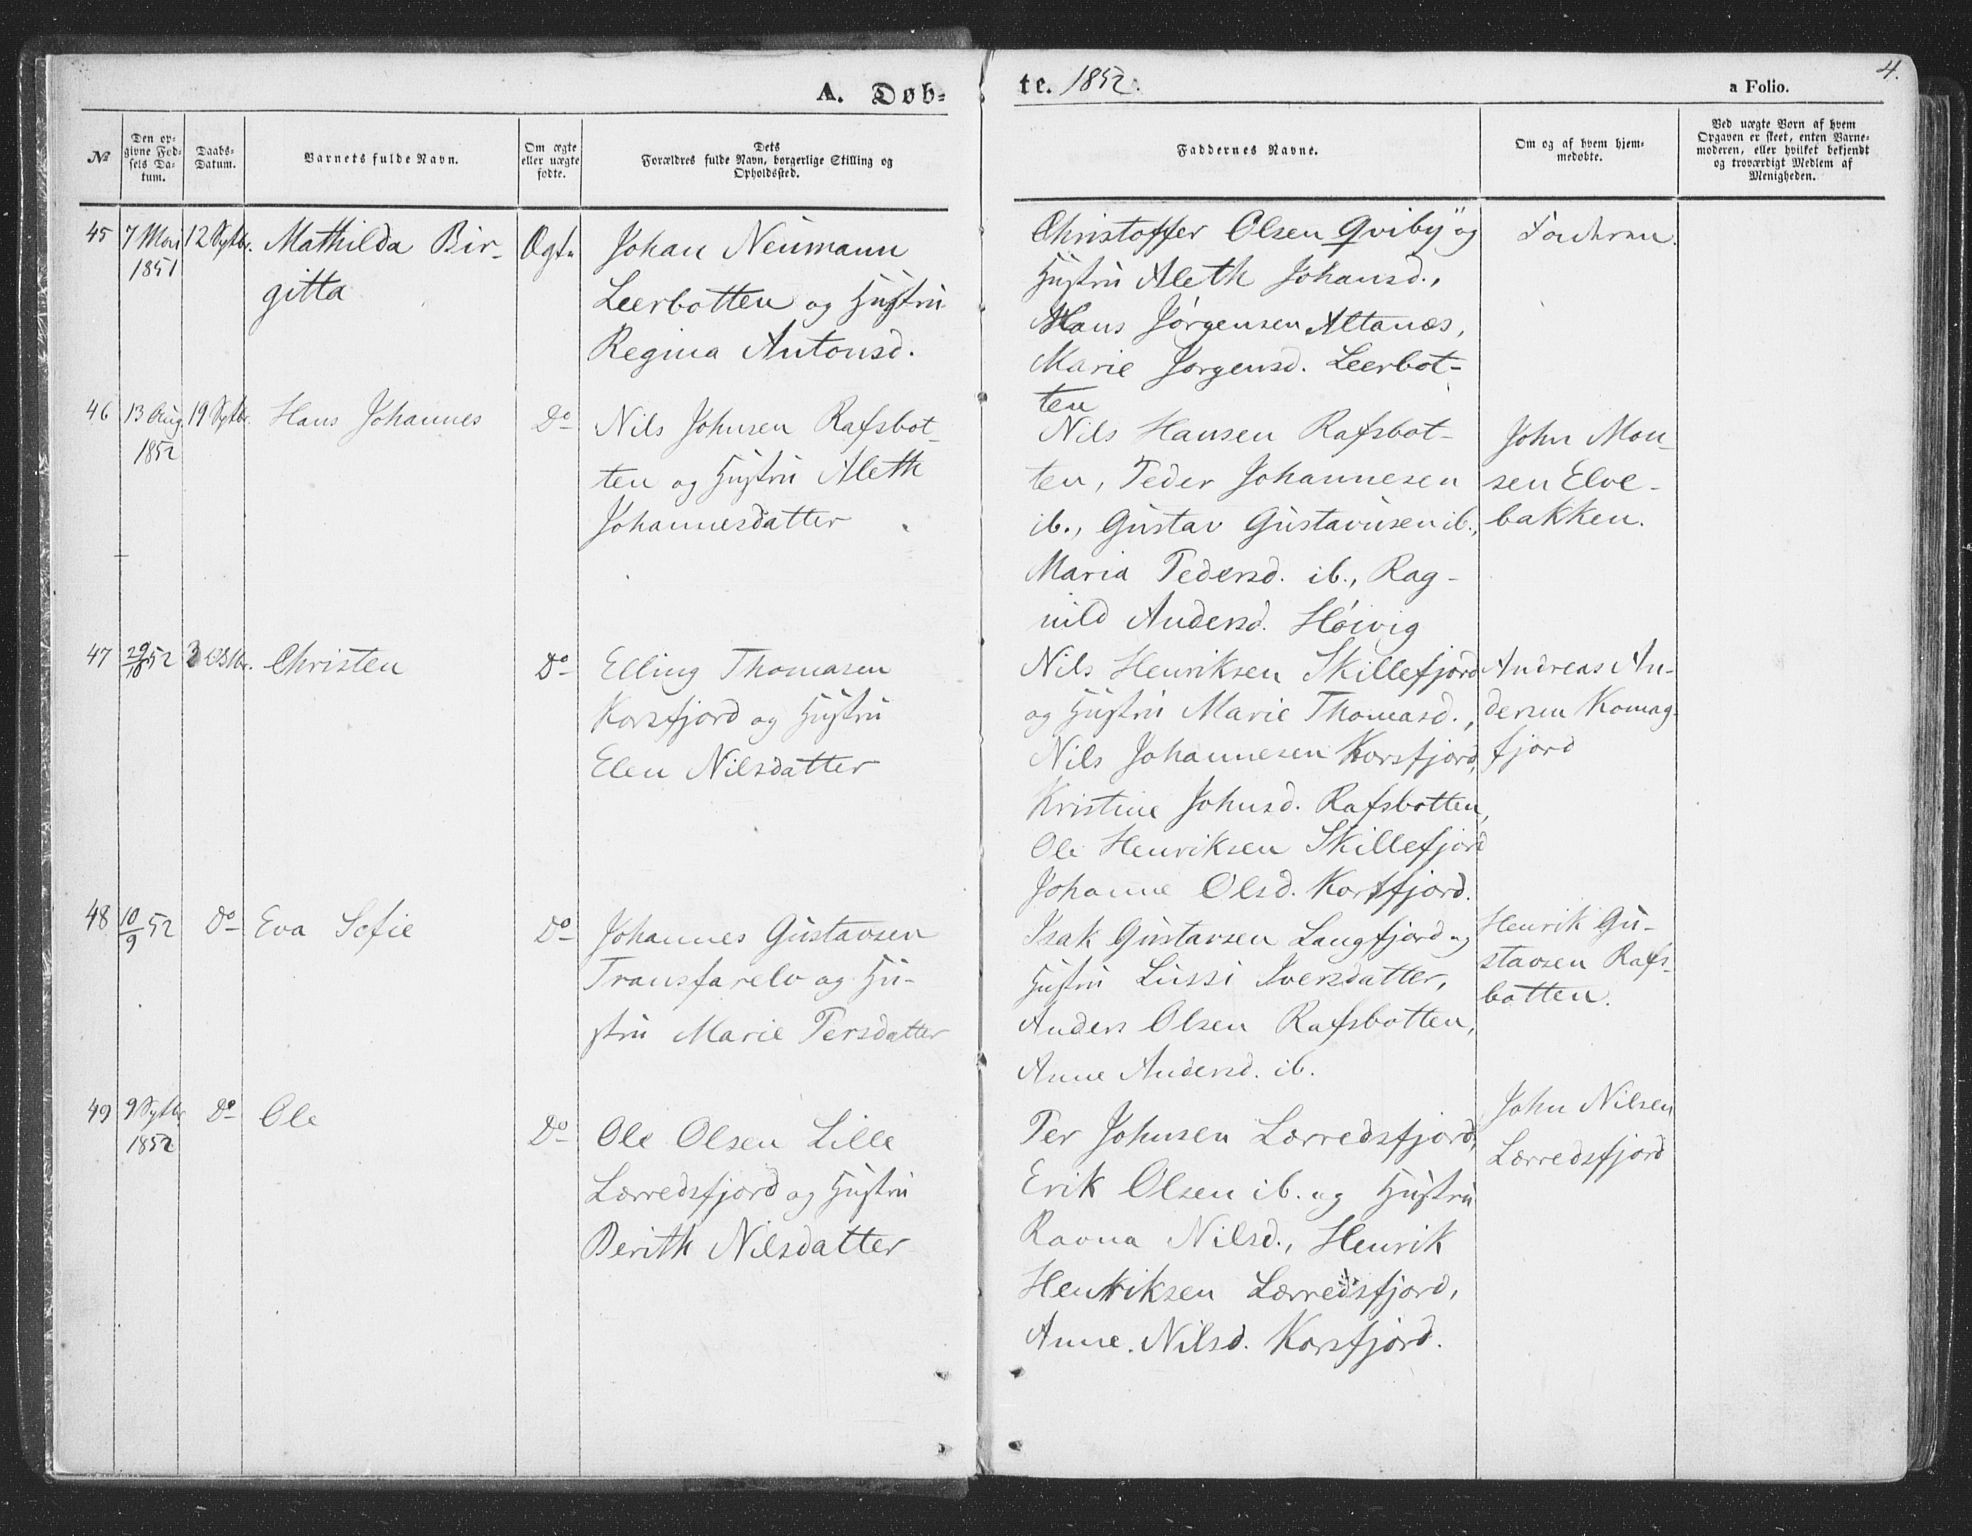 A. Døb-
te. 1852.
a Folio.
4.
No
Den op-
givne Fød-
sels Da-
tum.
Daabs-
Datum.
Barnets fulde Navn.
Om ægte
eller uægte
fødte.
Dets
Forældres fulde Navn, borgerlige Stilling og
Opholdssted.
Faddernes Navne.
Om og af hvem hjem-
medøbte.
Ved uægte Børn af hvem
Opgaven er skeet, enten Barne-
moderen, eller hvilket bekjendt
og troværdigt Medlem af
Menigheden.
45
7 Mai
1851
12 Septbr.
Mathilda Bir-
gitta
Ægte
Johan Neumann
Leerbotten og Hustru
Regina Antonsd.
Christoffer Olsen Qviby og
Hustru Aleth Johansd.,
Hans Jørgensen Altanæs,
Marie Jørgensd. Leerbot-
ten
46
13 Aug
1852
19 Septbr.
Hans Johannes
Do
Nils Johnsen Rafsbot-
ten og Hustru Aleth
Johannesdatter
Nils Hansen Rafsbot-
ten, Peder Johannesen
ib., Gustav Gustavusen ib.,
Maria Pedersd. ib., Rag-
nild Andersd. Høivig
John Mon-
sen Elve-
bakken.
47
52
3 Oktbr.
Christen
Do
Elling Thomasen
Korsfjord og Hustru
Elen Nilsdatter
Nils Henriksen Skillefjord
og Hustru Marie Thomasd.,
Nils Johannesen Korsfjord,
Kristine Johnsd. Rafsbotten,
Ole Henriksen Skillefjord
Johanne Olsd. Korsfjord.
Andreas An-
dersen Komag-
fjord
48
10/9 52
Do
Eva Sofie
Do
Johannes Gustavsen
Transfarelv og Hu-
stru Marie Persdatter
Isak Gustavsen Langfjord og
Hustru Lussi Iversdatter,
Anders Olsen Rafsbotten,
Anne Andersd. ib.
Henrik Gu-
stavsen Rafs-
botten.
49
9 Septbr
1852
Do
Ole
Do
Ole Olsen Lille
Lærredsfjord og Hustru
Berith Nilsdatter
Per Johnsen Lærredsfjord,
Erik Olsen ib. og Hustru
Ravna Nilsd., Henrik
Henriksen Lærredsfjord,
Anne Nilsd. Korsfjord.
John Nilsen
Lærredsfjord